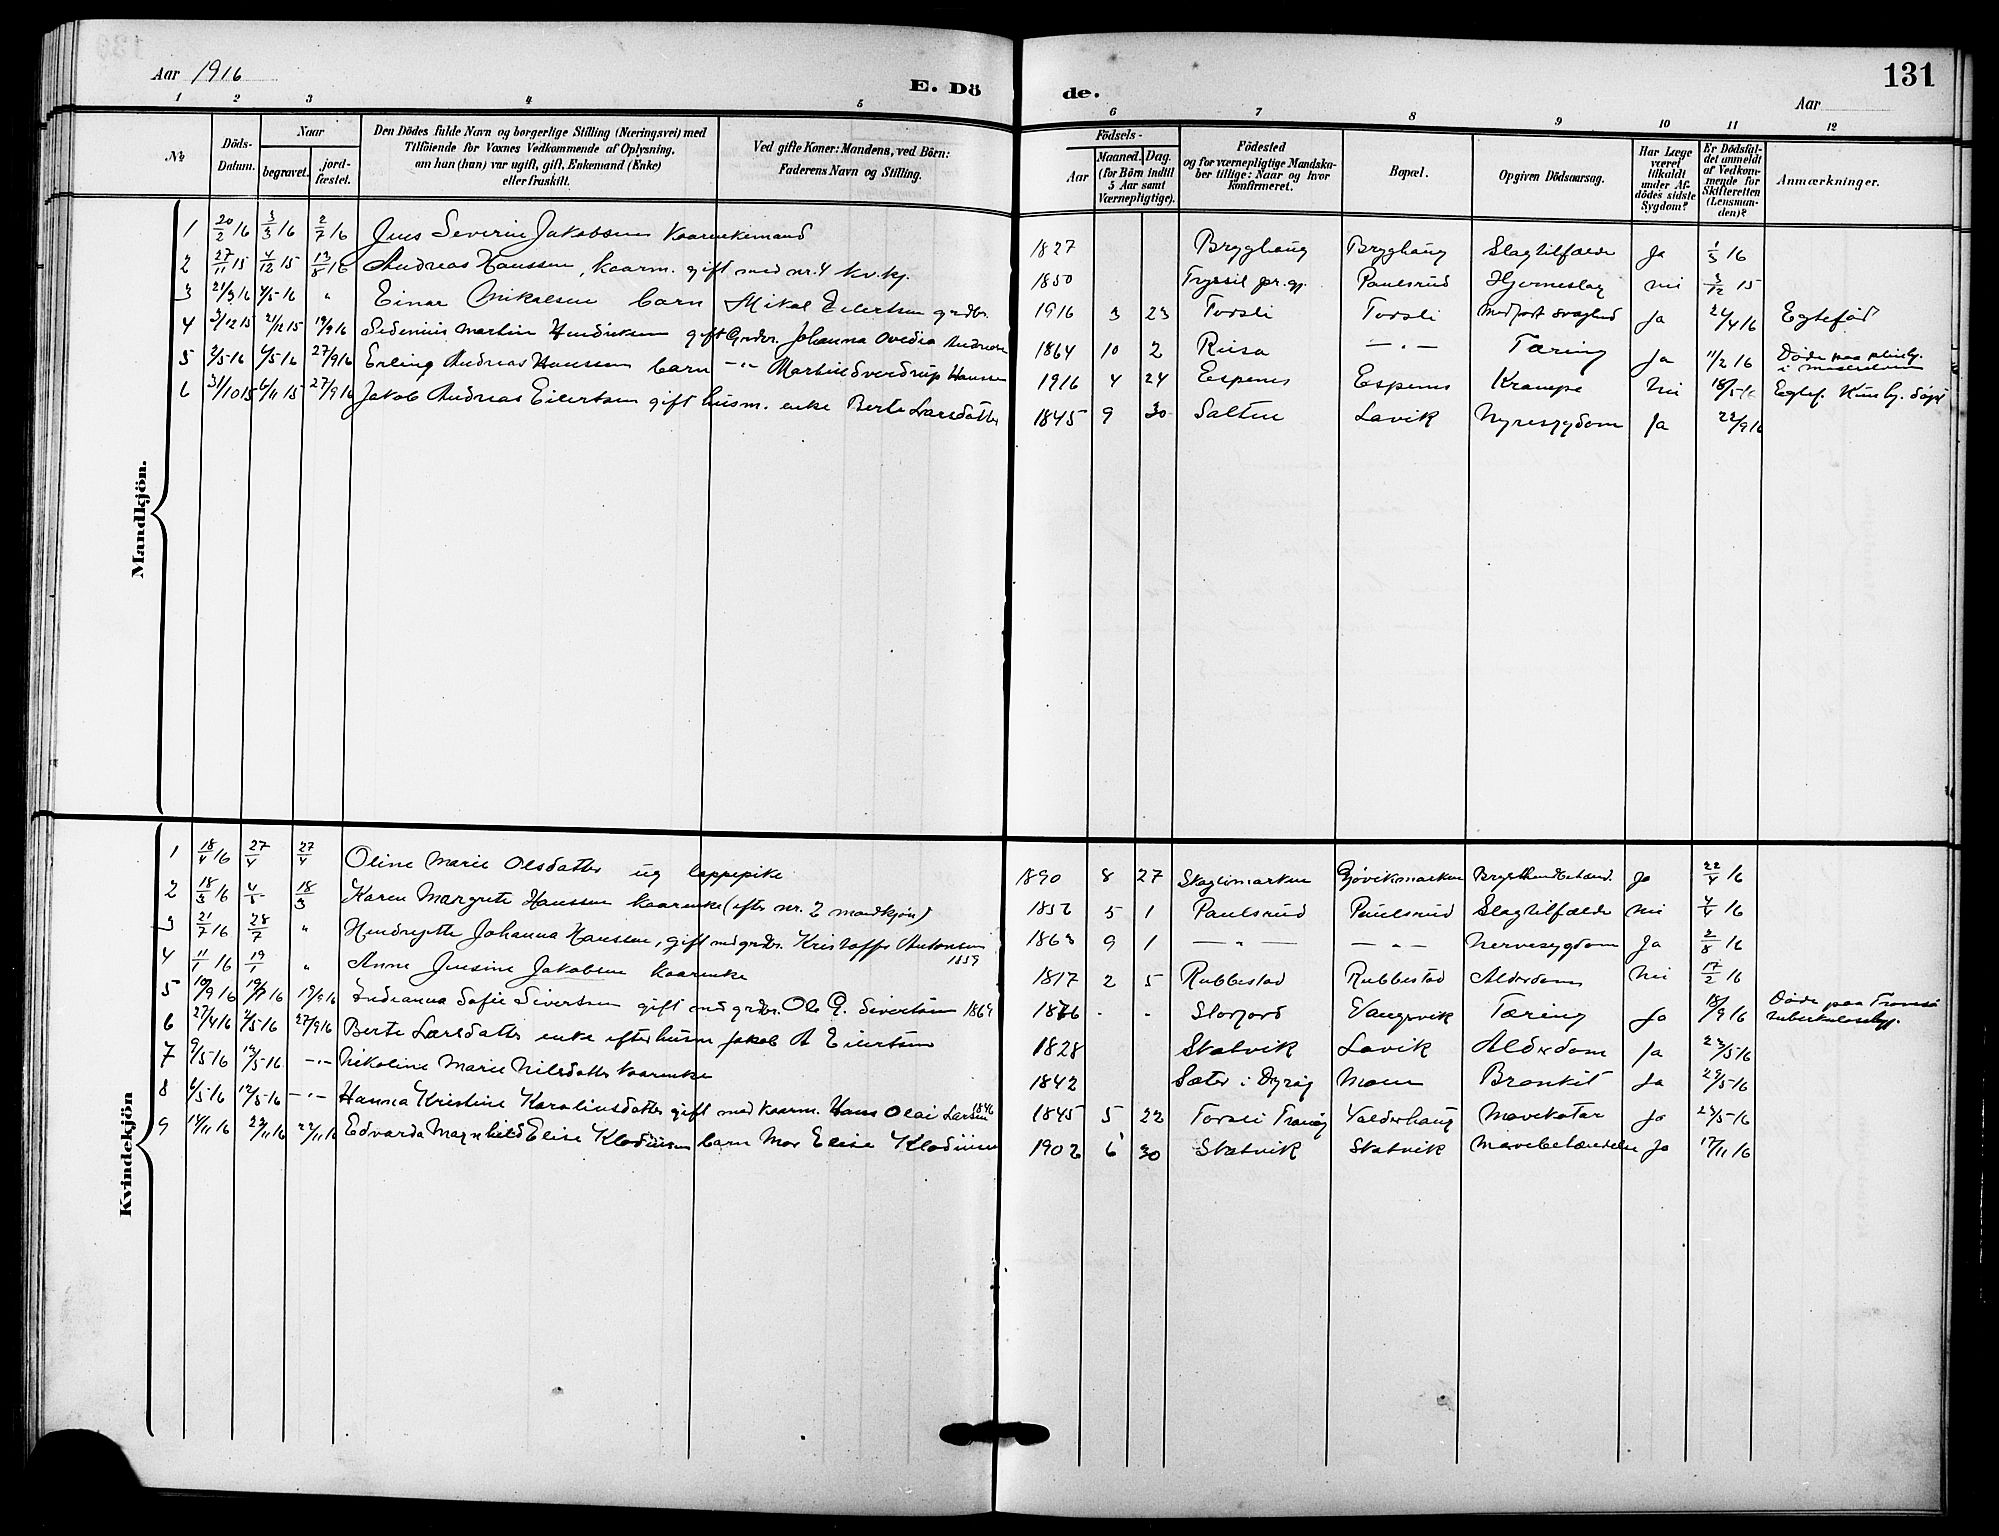 Aar 1916
E. Dö
de.
131
Aar
1 2 3 4 5 6 7 8 9 10 11 12
No
Döds-Datum.
Naar
begravet.
jord-fæstet.
Den Dödes fulde Navn og borgerlige Stilling (Næringsvei) med
Tilföiende for Voxnes Vedkommende af Oplysning,
om han (hun) var ugift, gift, Enkemand (Enke)
eller fraskilt.
Ved gifte Koner: Mandens, ved Börn:
Faderens Navn og Stilling.
Födsels-
Aar
Maaned. Dag.
(for Börn indtil
5 Aar samt
Værnepligtige).
Födested
og for værnepligtige Mandska-
ber tillige: Naar og hvor
konfirmeret.
Bopæl.
Opgiven Dödsaarsag.
Har Læge
været
tilkaldt
under Af-
dödes sidste
Sygdom?
Er Dödsfal-
det anmeldt
af Vedkom-
mende for
Skifteretten
(Lensman-
den)?
Anmærkninger.
Mandkjön.
1 20/2 16 3/3 16 2/7 16 Jens Severin Jakobsen Kaarenkemand 1827 Bryghaug Bryghaug Slagtilfælde Ja 1/3 16
2 27/11 15 4/12 15 13/8 16 Andreas Hanssen, kaarm. gift med nr. 4 kv.kj. 1850 Tryssil pr.gj. Paulsrud Hjerneslag nei 3/12 15
3 21/3 16 4/5 16 " Einar Mikalsen barn Mikal Eilertsen grdbr. 1916 3 23 Torsli Torsli Medfødt svaghed Ja 24/4 16 Egtefød
4 3/12 15 21/12 15 19/9 16 Sedenius Martin Hendriksen gift Grdbr. Johanna Ovedia Andreasen 1864 10 2 Reisa — " — Tæring Ja 11/2 16 Døde paa pleiehj.
5 2/5 16 4/5 16 27/9 16 Erling Andreas Hanssen barn — " — Martin Sverdrup Hanssen 1916 4 24 Espenes Espenes Krampe Nei 18/5 16 Egtef. Hjem. døpt
6 31/10 15 6/11 15 27/9 16 Jakob Andreas Eilertsen gift husm. enke Berte Larsdatter 1845 9 30 Salten Lavik Nyresygdom Ja 22/9 16
Kvindekjön
1 18/4 16 27/4 27/4 Oline Marie Olsdatter ug lappepike 1890 8 27 Skøelvmarken Gjøvikmarken Ja 22/4 16
2 18/3 16 4/5 18/3 Karen Margrete Hanssen kaarenke (efter nr. 2 mandkjøn) 1852 5 1 Paulsrud Paulsrud Slagtilfælde nei 4/4 16
3 21/7 16 28/7 " Hendrejette Johanna Hanssen, gift med grdbr. Kristoffer Antonsen 1859 1863 9 1 — " — — " — Nervesygdom Ja 2/8 16
4 11/1 16 19/1 " Anne Jensine Jakobsen kaarenke 1817 2 5 Rubbestad Rubbestad Alderdom Nei 17/2 16
5 10/9 16 19/9 16 19/9 16 Indianna Sofie Sivertsen gift med grdbr. Ole G. Sivertsen 1864 1876 - - Storfjord Vangsvik Tæring Ja 18/9 16 Døde paa Tromsø tuberkulosehj.
6 27/4 16 4/5 16 27/9 16 Berte Larsdatter enke efter husm Jakob A Eilertsen 1828 Skatvik Lavik Alderdom Ja 23/5 16
7 9/5 16 19/5 16 — " — Nikoline Marie Nilsdatter kaarenke 1842 Sæter i Dyrøy Moen Bronkit Ja 29/5 16
8 4/5 16 12/5 16 — " — Hanna Kristine Karoliusdatter gift med kaarm. Hans Olai Larsen 1846 1845 5 22 Torsli Tranøy Valderhaug Mavekatar Ja 23/5 16
9 14/11 16 22/11 16 22/11 16 Edvarda Magnhild Elise Klodiusen barn Mor Elise Klodiusen 1902 6 30 Skatvik Skatvik Mavebetændelse Ja 17/11 16